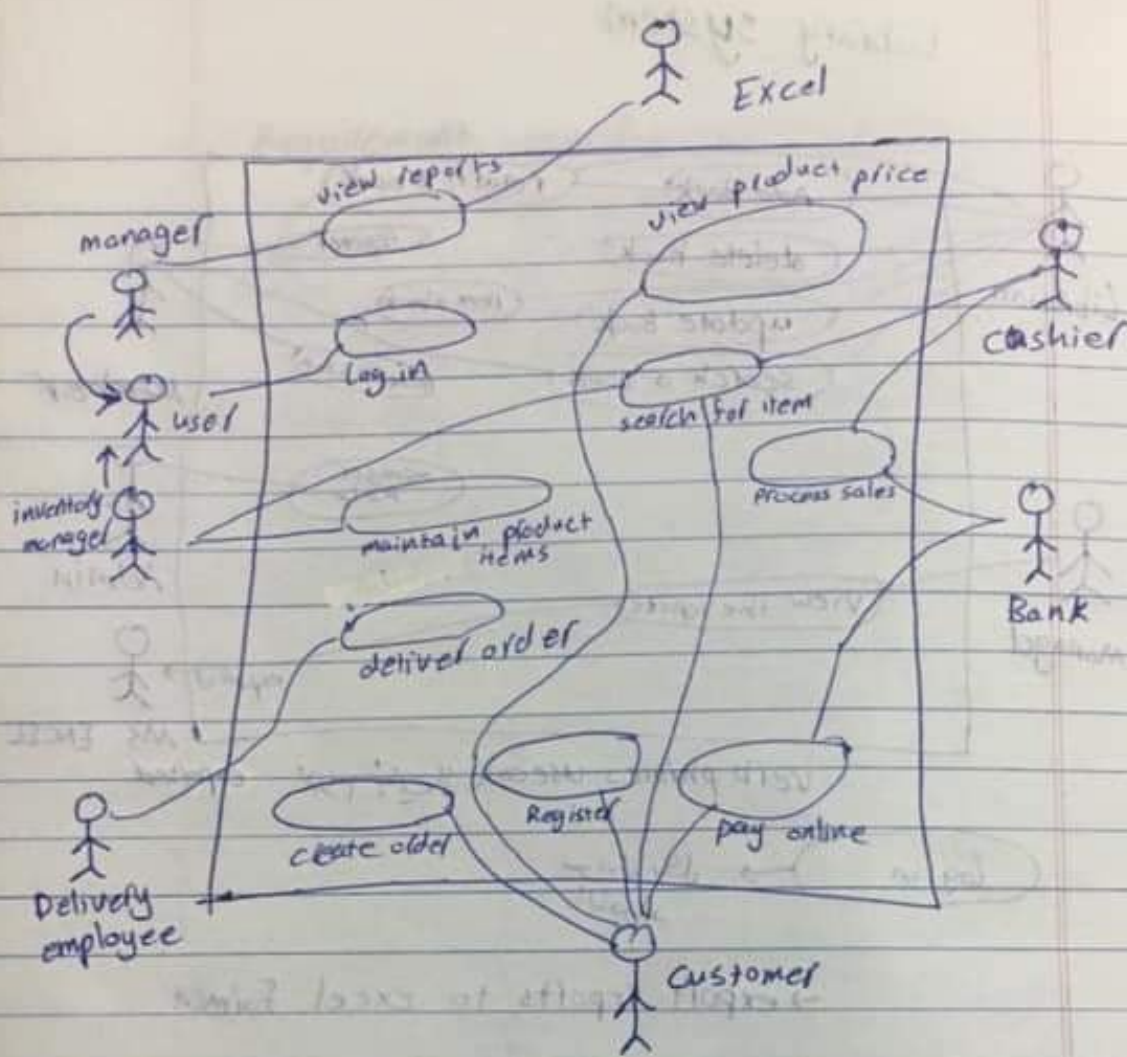 Excel
view reports
view product price
manager
Cashier
Log in
user
search for item
process sales
inventory
manager
maintain product
items
Bank
deliver order
Register
pay online
create order
Delivery
employee
Customer